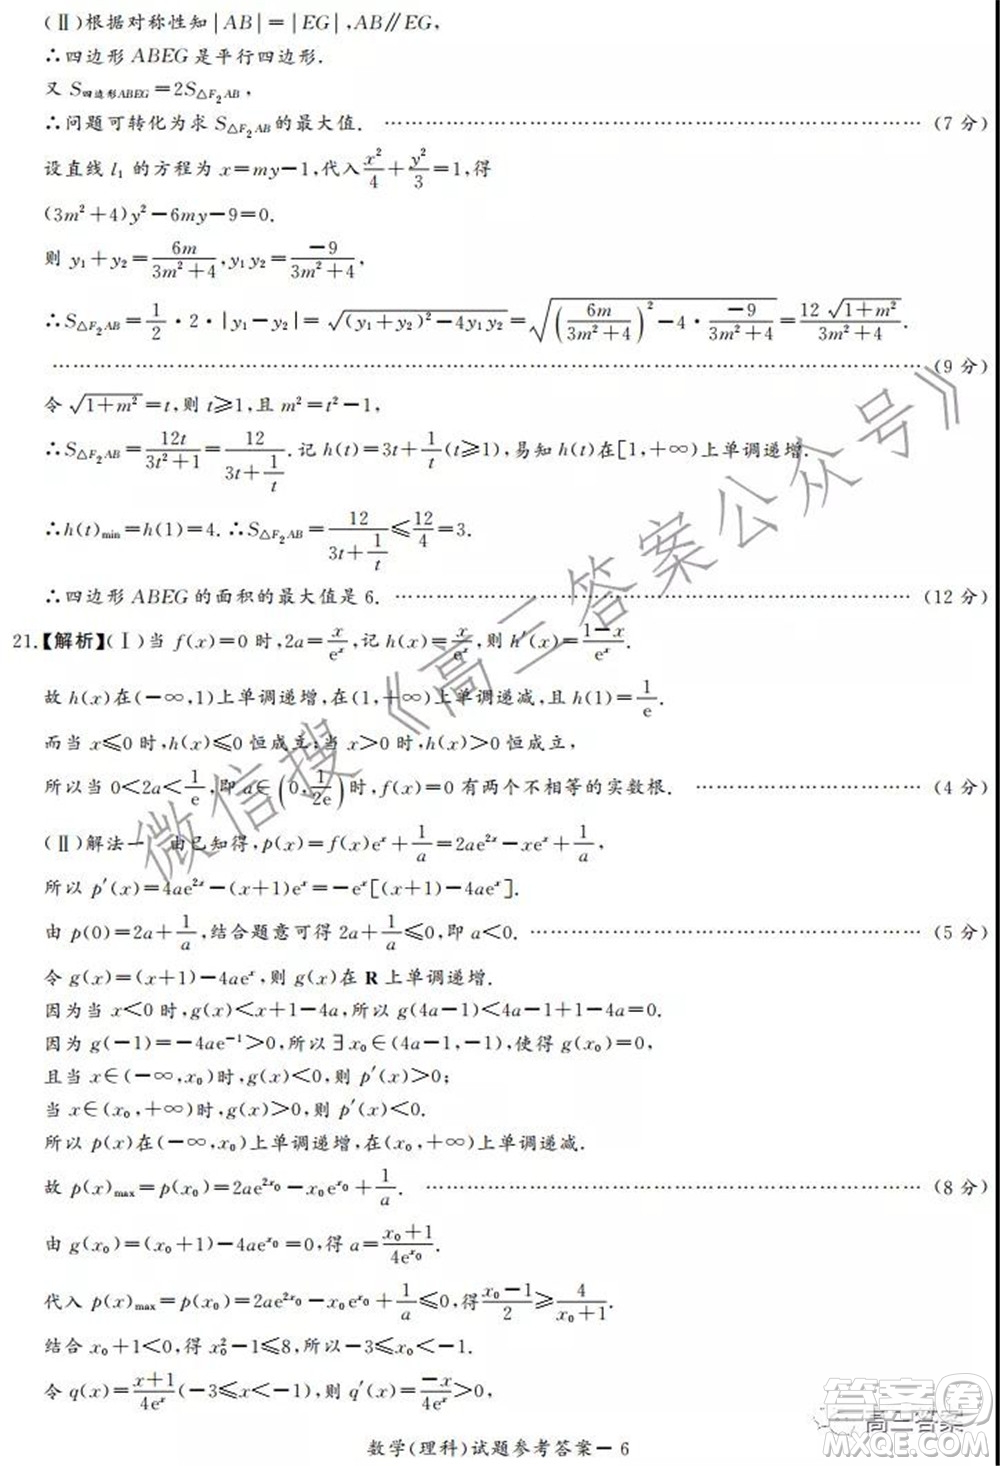 (Ⅱ)根据对称性知|AB|=|EG|,AB∥EG,
∴四边形ABEG是平行四边形.
又 S四边形ABEG=2S△F₂AB,
∴问题可转化为求 S△F₂AB的最大值. ……………………………………………… (7 分)
设直线 l₁ 的方程为 x=my-1,代入x²/4+y²/3=1,得
(3m²+4)y²-6my-9=0.
则 y₁+y₂=6m/(3m²+4),y₁y₂=-9/(3m²+4),
∴S△F₂AB=1/2·2·|y₁-y₂|=√((y₁+y₂)²-4y₁y₂)=√((6m/(3m²+4))²-4·-9/(3m²+4))=12√(1+m²)/(3m²+4).
……………………………………………… (9 分)
令√(1+m²)=t,则 t≥1,且 m²=t²-1,
∴S△F₂AB=12t/(3t²+1)=12/(3t+1/t).记 h(t)=3t+1/t(t≥1),易知 h(t)在[1,+∞)上单调递增.
∴h(t)min=h(1)=4. ∴S△F₂AB=12/(3t+1/t)≤12/4=3.
∴四边形 ABEG 的面积的最大值是 6. ……………………………………………… (12 分)
21.【解析】(Ⅰ)当 f(x)=0 时,2a=x/eˣ,记 h(x)=x/eˣ,则 h′(x)=(1-x)/eˣ.
故 h(x)在(-∞,1)上单调递增,在(1,+∞)上单调递减,且 h(1)=1/e.
而当 x≤0 时,h(x)≤0 恒成立;当 x>0 时,h(x)>0 恒成立,
所以当 0<2a<1/e,即 a∈(0,1/2e)时,f(x)=0 有两个不相等的实数根. ……………………… (4 分)
(Ⅱ)解法一 由已知得,p(x)=f(x)eˣ+1/a=2ae²ˣ-xeˣ+1/a,
所以 p′(x)=4ae²ˣ-(x+1)eˣ=-eˣ[(x+1)-4aeˣ].
由 p(0)=2a+1/a,结合题意可得 2a+1/a≤0,即 a<0. ……………………………………… (5 分)
令 g(x)=(x+1)-4aeˣ,则 g(x)在 R 上单调递增.
因为当 x<0 时,g(x)<x+1-4a,所以 g(4a-1)<4a-1+1-4a=0.
因为 g(-1)=-4ae⁻¹>0,所以∃x₀∈(4a-1,-1),使得 g(x₀)=0,
且当 x∈(-∞,x₀)时,g(x)<0,则 p′(x)>0;
当 x∈(x₀,+∞)时,g(x)>0,则 p′(x)<0.
所以 p(x)在(-∞,x₀)上单调递增,在(x₀,+∞)上单调递减.
故 p(x)max=p(x₀)=2ae^(2x₀)-x₀e^(x₀)+1/a. ……………………………………………… (8 分)
由 g(x₀)=(x₀+1)-4ae^(x₀)=0,得 a=(x₀+1)/4e^(x₀).
代入 p(x)max=p(x₀)=2ae^(2x₀)-x₀e^(x₀)+1/a≤0,得(x₀-1)/2≥4/(x₀+1).
结合 x₀+1<0,得 x₀²-1≤8,所以-3≤x₀<-1.
令 q(x)=(x+1)/4eˣ(-3≤x<-1),则 q′(x)=-x/4eˣ>0,
数学(理科)试题参考答案-6
微信搜《高三答案公众号》
答案圈
高三答案
MXQE.COM